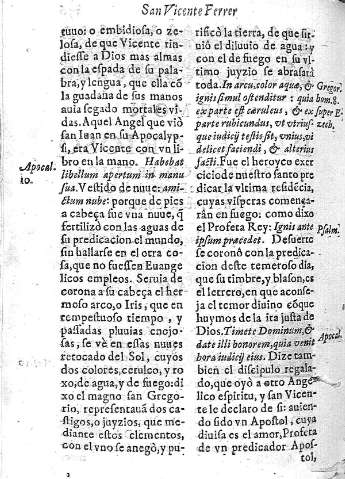 San Vicente Ferrer
tuuo: o embidiosa, o ze-
losa, de que Vicente rin-
diesse a Dios mas almas
con la espada de su pala-
bra, y lengua, que ella cō
la guadaña de sus manos
auia segado mortales vi-
das. Aquel Angel que viò
san Iuan en su Apocalyp-
si, era Vicente con vn li-
bro en la mano. Habebat
libellum apertum in manu
sua. Vestido de nuue: ami-
ctum nube: porque de pies
a cabeça fue vna nuue, q̄
fertilizò con las aguas de
su predicacion el mundo,
sin hallarse en el otra co-
sa, que no fuessen Euange
licos empleos. Seruia de
corona a su cabeça el her
moso arco, o Iris, que en
tempestuoso tiempo, y
passadas pluuias enojo-
sas, se vè en essas nuues
retocado del Sol, cuyos
dos colores, ceruleo, y ro
xo, de agua, y de fuego: di
xo el magno san Grego-
rio, representauā dos ca-
stigos, o juyzios, que me-
diante estos elementos,
con el vno se anegò, y pu-
Apocal.
10.
rificò la tierra, de que sir-
uiò el diluuio de agua: y
con el de fuego en su vl-
timo juyzio se abrasarà
toda. In arcu, color aquæ, &
ignis simul ostenditur: quia
ex parte est cæruleus, & ex
parte rubicundus, vt vtrius-
que iudicij testis sit, vnius, vi
delicet faciendi, & alterius
facti. Fue el heroyco exer
cicio de nuestro santo pre
dicar la vltima residēcia,
cuyas visperas comença-
rān en fuego: como dixo
el Profeta Rey: Ignis ante
ipsum præcedet. De suerte
se coronò con la predica-
cion deste temeroso dia,
que su timbre, y blason, es
el letrero, en que aconse-
ja el temor diuino cō que
huymos de la ira justa de
Dios. Timete Dominum, &
date illi honorem, quia venit
hora iudicij eius. Dize tam-
bien el discipulo regala-
do, que oyò a otro Ange-
lico espiritu, y san Vicen-
te le declaro de si: auien-
do sido vn Apostol, cuya
diuisa es el amor, Profeta
de vn predicador Apos-
tol,
Gregor.
hom. 8.
super E-
zech.
Psalm.
Apocal.